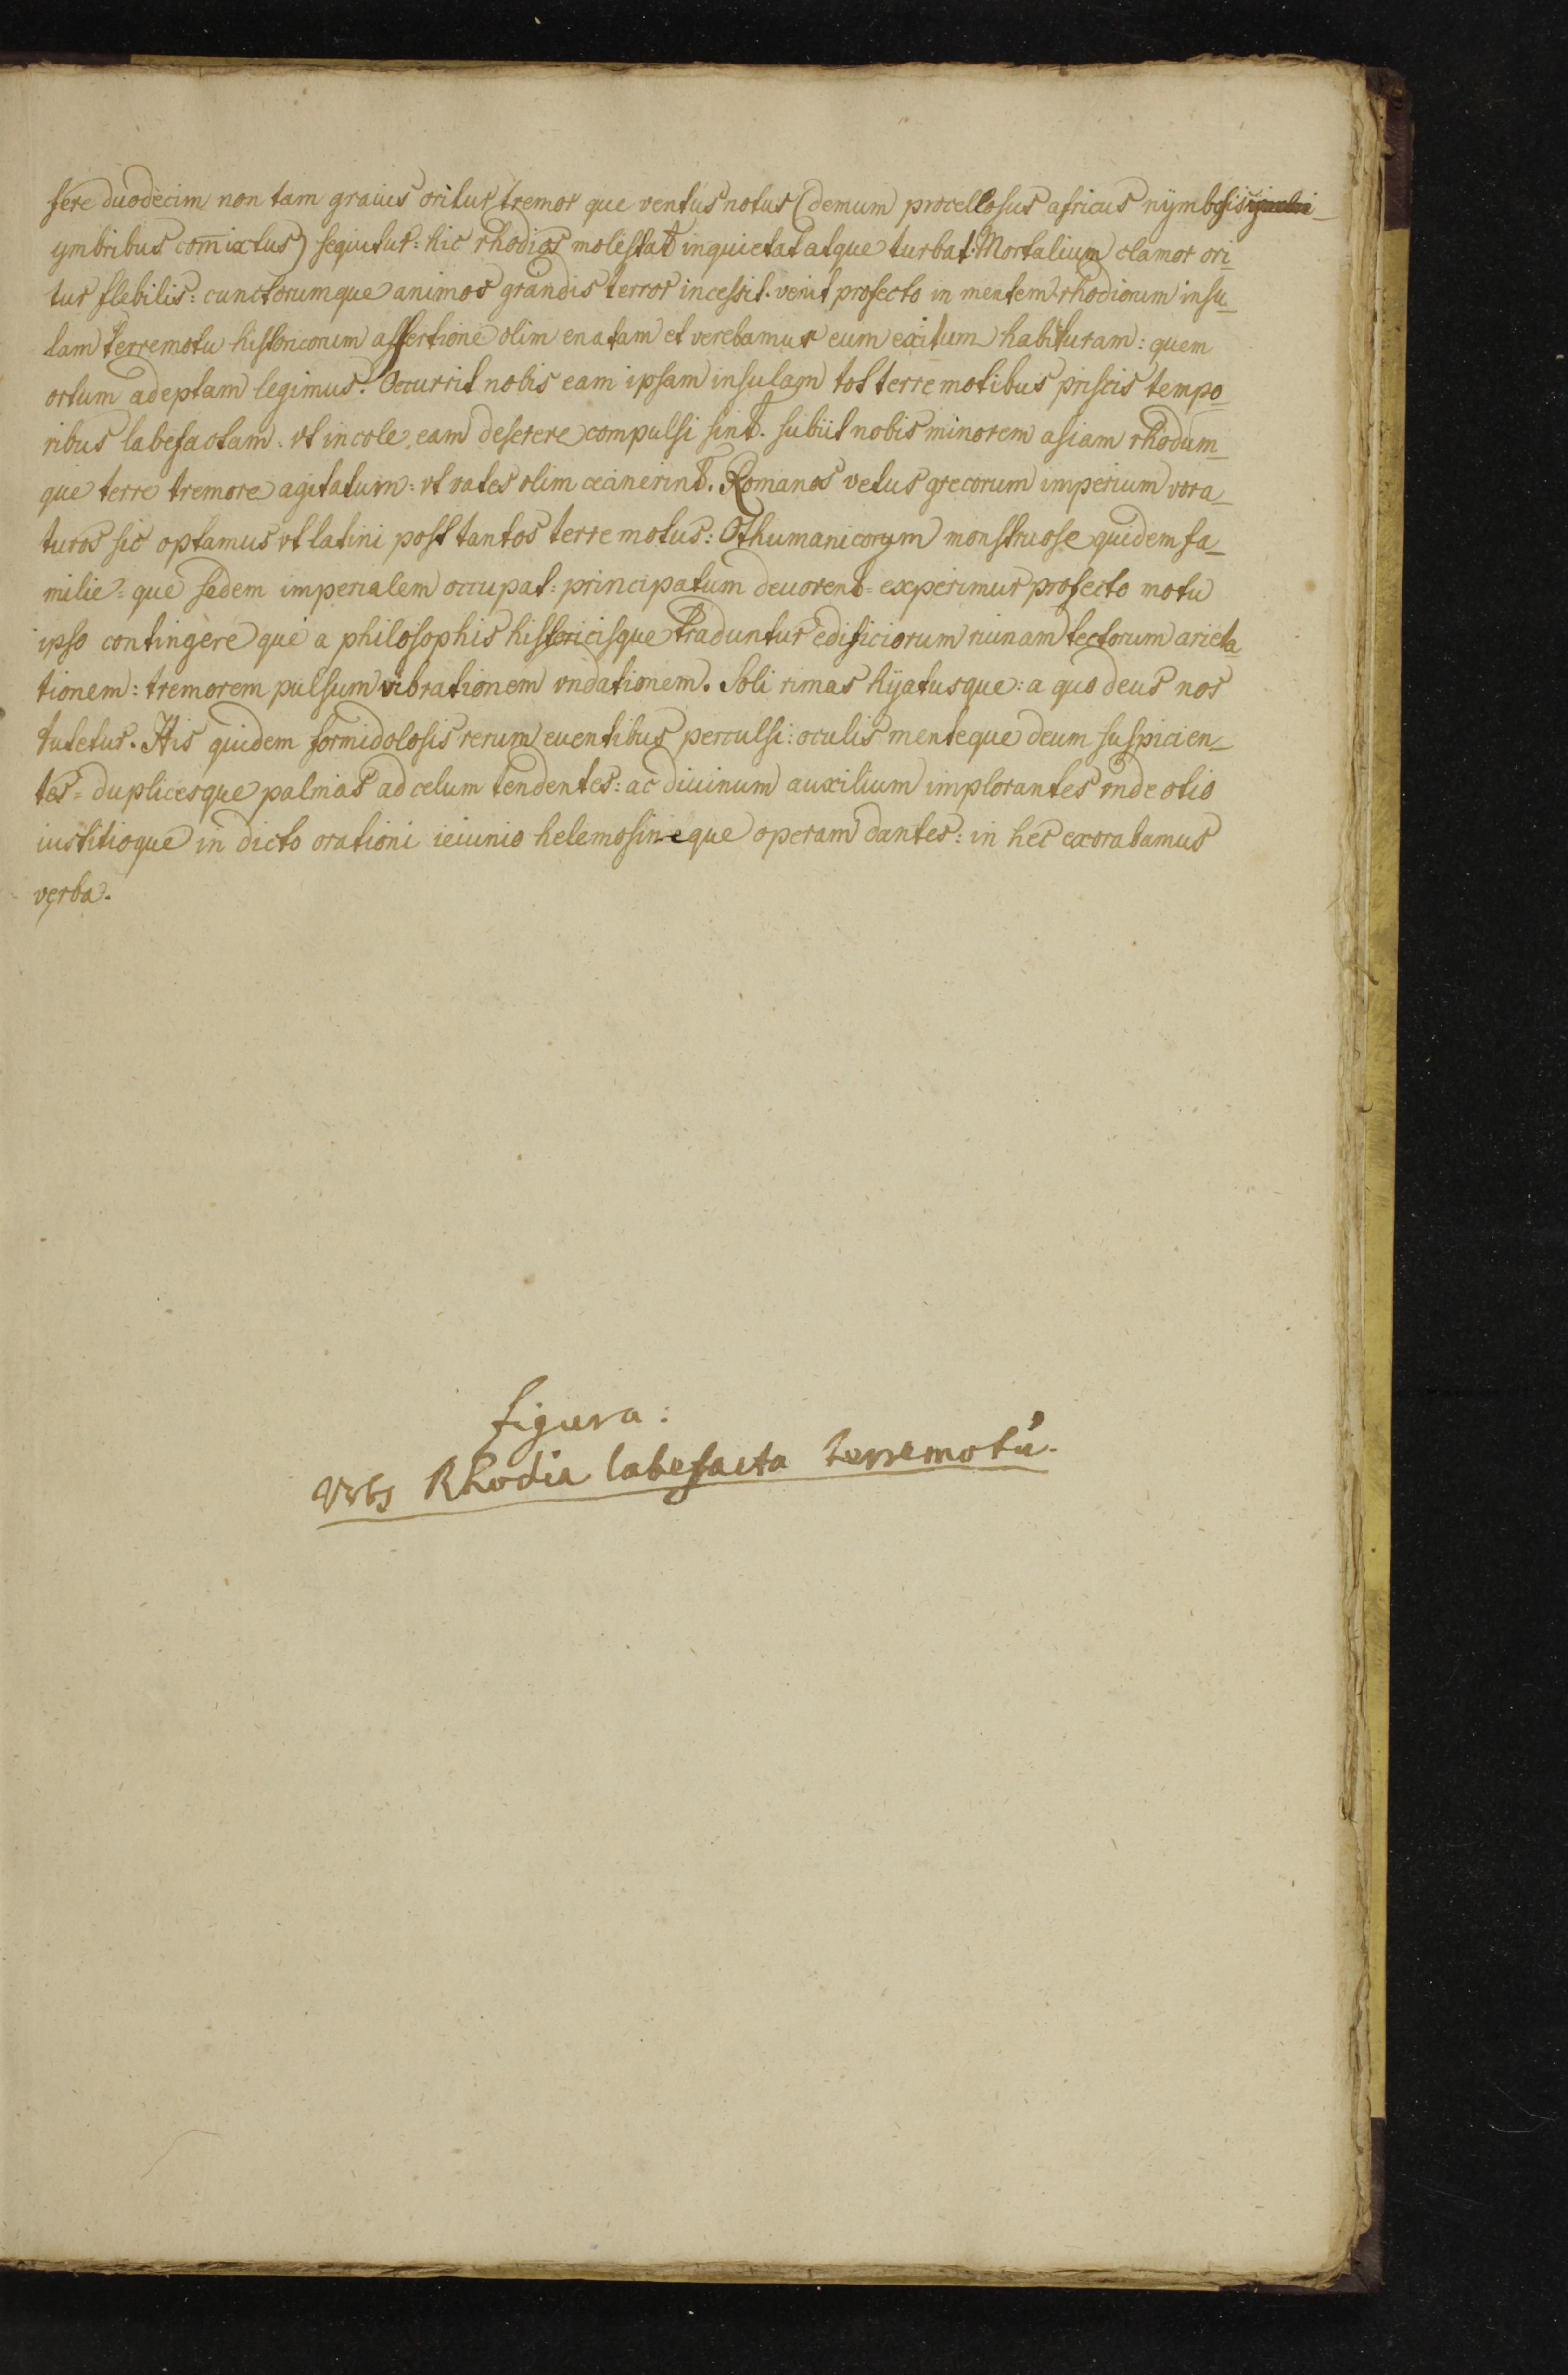 fere duodecim non tam grauis oritur tremor que ventus notus (demum procellosus africus nymbosis
ymbribus comixtus) sequitur: hic rhodios molestat inquietat atque turbat. Mortalium clamor ori_
tur flebilis: cunctorumque animos grandis terror incessit. venit profecto in mentem rhodiorum insu_
lam terremotu historicorum assertione olim enatam et verebamur eum exitum habituram: quem
ortum adeptam legimus. Occurrit nobis eam ipsam insulam tot terremotibus priscis tempo_
ribus labefactam. vt incole eam deserere compulsi sint. subiit nobis minorem asiam rhodum_
que terre tremore agitatum: vt vates olim cecinerint. Romanos vetus grecorum imperium vora_
turos sic optamus vt latini post tantos terre motus: Othumanicorum monstruose quidem fa_
milie: que sedem imperialem occupat: principatum deuorent: experimur profecto motu
ipso contingere que a philosophis historicisque traduntur edificiorum ruinam tectorum arieta_
tionem: tremorem pulsum vibrationem vndationem. Soli rimas hyatusque: a quo deus nos
tutetur. His quidem formidolosis rerum euentibus perculsi: oculis menteque deum suspicien_
tes: duplicesque palmas ad celum tendentes: ac diuinum auxilium implorantes vnde otio
iustitioque in dicto orationi ieiunio helemosineque operam dantes: in hec exorabamus
verba.
figura:
Vrbs Rhodia labefacta terremotú.